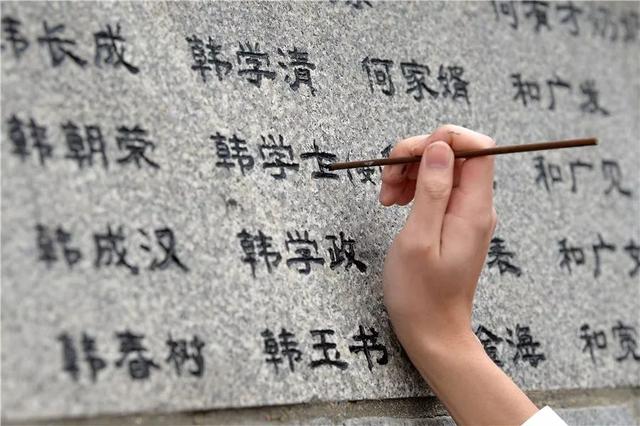 韩长成 韩学清 何家婿 和广发
韩朝荣 韩学士 和广见
韩成汉 韩学政 和广
韩春树 韩玉书 海 和宽